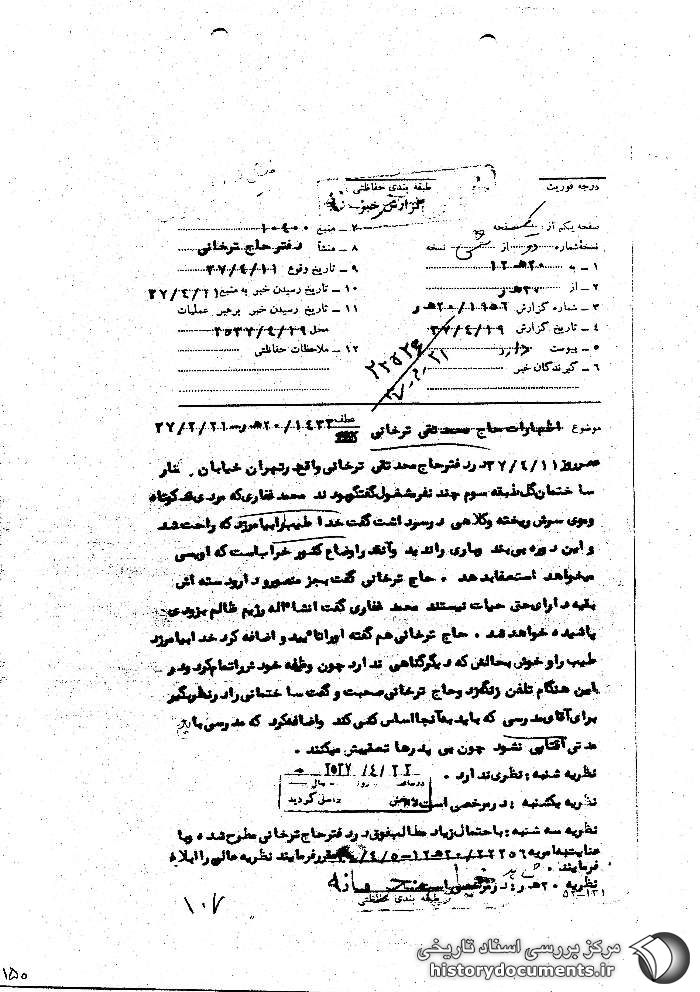 درجه فوریت
طبقه بندی حفاظتی
گزارش خبر
صفحه یکم از یک صفحه
نسخهٔ شماره دو از نسخه
۱ ـ به ۲۰ ه ۱۲
۲ ـ از ۲۰ ه ر
۳ ـ شماره گزارش ۲۰/۱۹۵۲ ه ر
۴ ـ تاریخ گزارش ۳۷/۴/۱۹
۵ ـ پیوست
۶ ـ گیرندگان خبر
۷ ـ منبع ۱۰۴۰۰
۸ ـ منشأ دفتر حاج ترخانی
۹ ـ تاریخ وقوع ۳۷/۴/۱۱
۱۰ ـ تاریخ رسیدن خبر به منبع ۳۷/۴/۱۱
۱۱ ـ تاریخ رسیدن خبر برهبر عملیات
محل ۲۵۳۷/۴/۱۹
۱۲ ـ ملاحظات حفاظتی
۲۲۵۲۶
موضوع اظهارات حاج محمد تقی ترخانی عطف ۲۰/۱۴۳۳ ه ر ـ ۳۷/۲/۲۱
عصر روز ۳۷/۴/۱۱ در دفتر حاج محمد تقی ترخانی واقع در تهران خیابان
ساختمان گل طبقه سوم چند نفر مشغول گفتگو بودند محمد غفاری که مردی قد کوتاه
وموی سرش ریخته وکلاهی درسر داشت گفت خدا طیب را بیامرزد که راحت شد
و این دوره بی بند وباری را ندید وآنقدر اوضاع کشور خراب است که اویسی
میخواهد استعفا بدهد . حاج ترخانی گفت بجز منصور و دارودسته اش
بقیه دارای حق حیات نیستند محمد غفاری گفت انشاءاله رژیم ظالم بزودی
پاشیده خواهد شد . حاج ترخانی هم گفته او را تأیید و اضافه کرد خدا بیامرزد
طیب را و خوش بحالش که دیگر گناهی ندارد چون وظیفه خودش را تمام کرد ودر
این هنگام تلفن زنگ زد وحاج ترخانی صحبت و گفت ساختمانی را در نظر بگیر
برای آقای مدرسی که باید به آنجا اسباب کشی کند واضافه کرد که مدرسی باید
مدتی آفتابی نشود چون بی پدرها تعقیبش میکنند .
نظریه شنبه : نظری ندارد .
۲۵۳۷/۴/۲۲
نظریه یکشنبه : در مرخصی است
نظریه سه شنبه : با احتمال زیاد مطالب فوق در دفتر حاج ترخانی مطرح شده وبا
عنایت به امریه ۲۰/۲۲۲۵۶ ه ۱۲ ـ ۳۷/۴/۵ مقرر فرمایند نظریه عالی را ابلاغ
فرمایند .
نظریه ۲۰ ه ر : در مرخصی است
طبقه بندی حفاظتی
۵۲-۱۳۱
۱۰۷
۱۵۰
مرکز بررسی اسناد تاریخی
historydocuments.ir